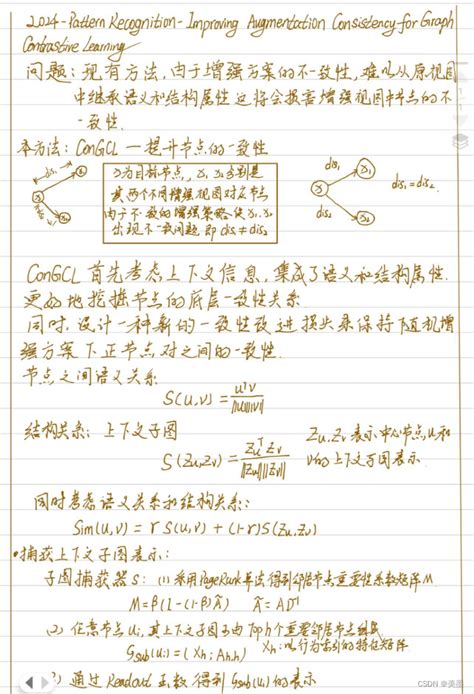 2024-Pattern Recognition-Improving Augmentation Consistency for Graph
Contrastive Learning
问题：现有方法，由于增强方案的不一致性，难以从原视图
中继承语义和结构属性 这将会损害增强视图中节点的不
一致性.
本方法：ConGCL —提升节点的一致性
dis₁
x
x₁
x₂
x为目标节点，x₁, x₂分别是
其两个不同增强视图对应节点
由于不一致的增强策略，使x₁, x₂
出现不一致问题 即 dis₁≠dis₂
dis₁
x
x₁
dis₂
x₂
dis₁=dis₂.
ConGCL 首先考虑上下文信息，集成了语义和结构属性.
更好地挖掘节点的底层一致性关系
同时，设计一种新的一致性改进损失来保持随机增
强方案下正节点对之间的一致性.
节点之间语义关系
S(u,v) = uᵀv / ||u||||v||
结构关系：上下文子图
S(Zu,Zv) = Zuᵀ Zv / ||Zu||||Zv||
Zu, Zv 表示中心节点u和
v的上下文子图表示.
同时考虑语义关系和结构关系：
Sim(u,v) = γ S(u,v) + (1-γ)S(Zu,Zv)
•捕获上下文子图表示：
子图捕获器S：(1) 采用PageRank算法得到邻居节点重要性系数矩阵M
M=β(I-(1-β)Ã) Ã=AD⁻¹
(2) 任意节点ui，其上下文子图由Top h个重要邻居节点组成
Gsub(ui)=(Xh; Ah,h) Xh：以行为索引的特征矩阵
通过 Readout 函数 得到 Gsub(ui) 的表示
CSDN @